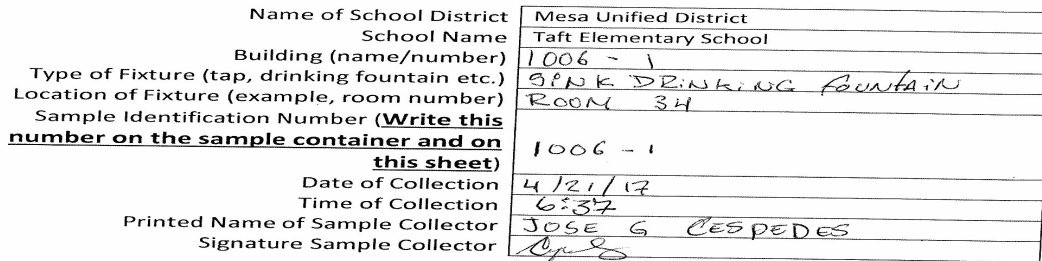 Name of School District Mesa Unified District
School Name Taft Elementary School
Building (name/number) 1006 - 1
Type of Fixture (tap, drinking fountain etc.) SINK DRINKING FOUNTAIN
Location of Fixture (example, room number) ROOM 34
Sample Identification Number (Write this
number on the sample container and on
this sheet) 1006 - 1
Date of Collection 4/21/17
Time of Collection 6:37
Printed Name of Sample Collector JOSE G CESPEDES
Signature Sample Collector